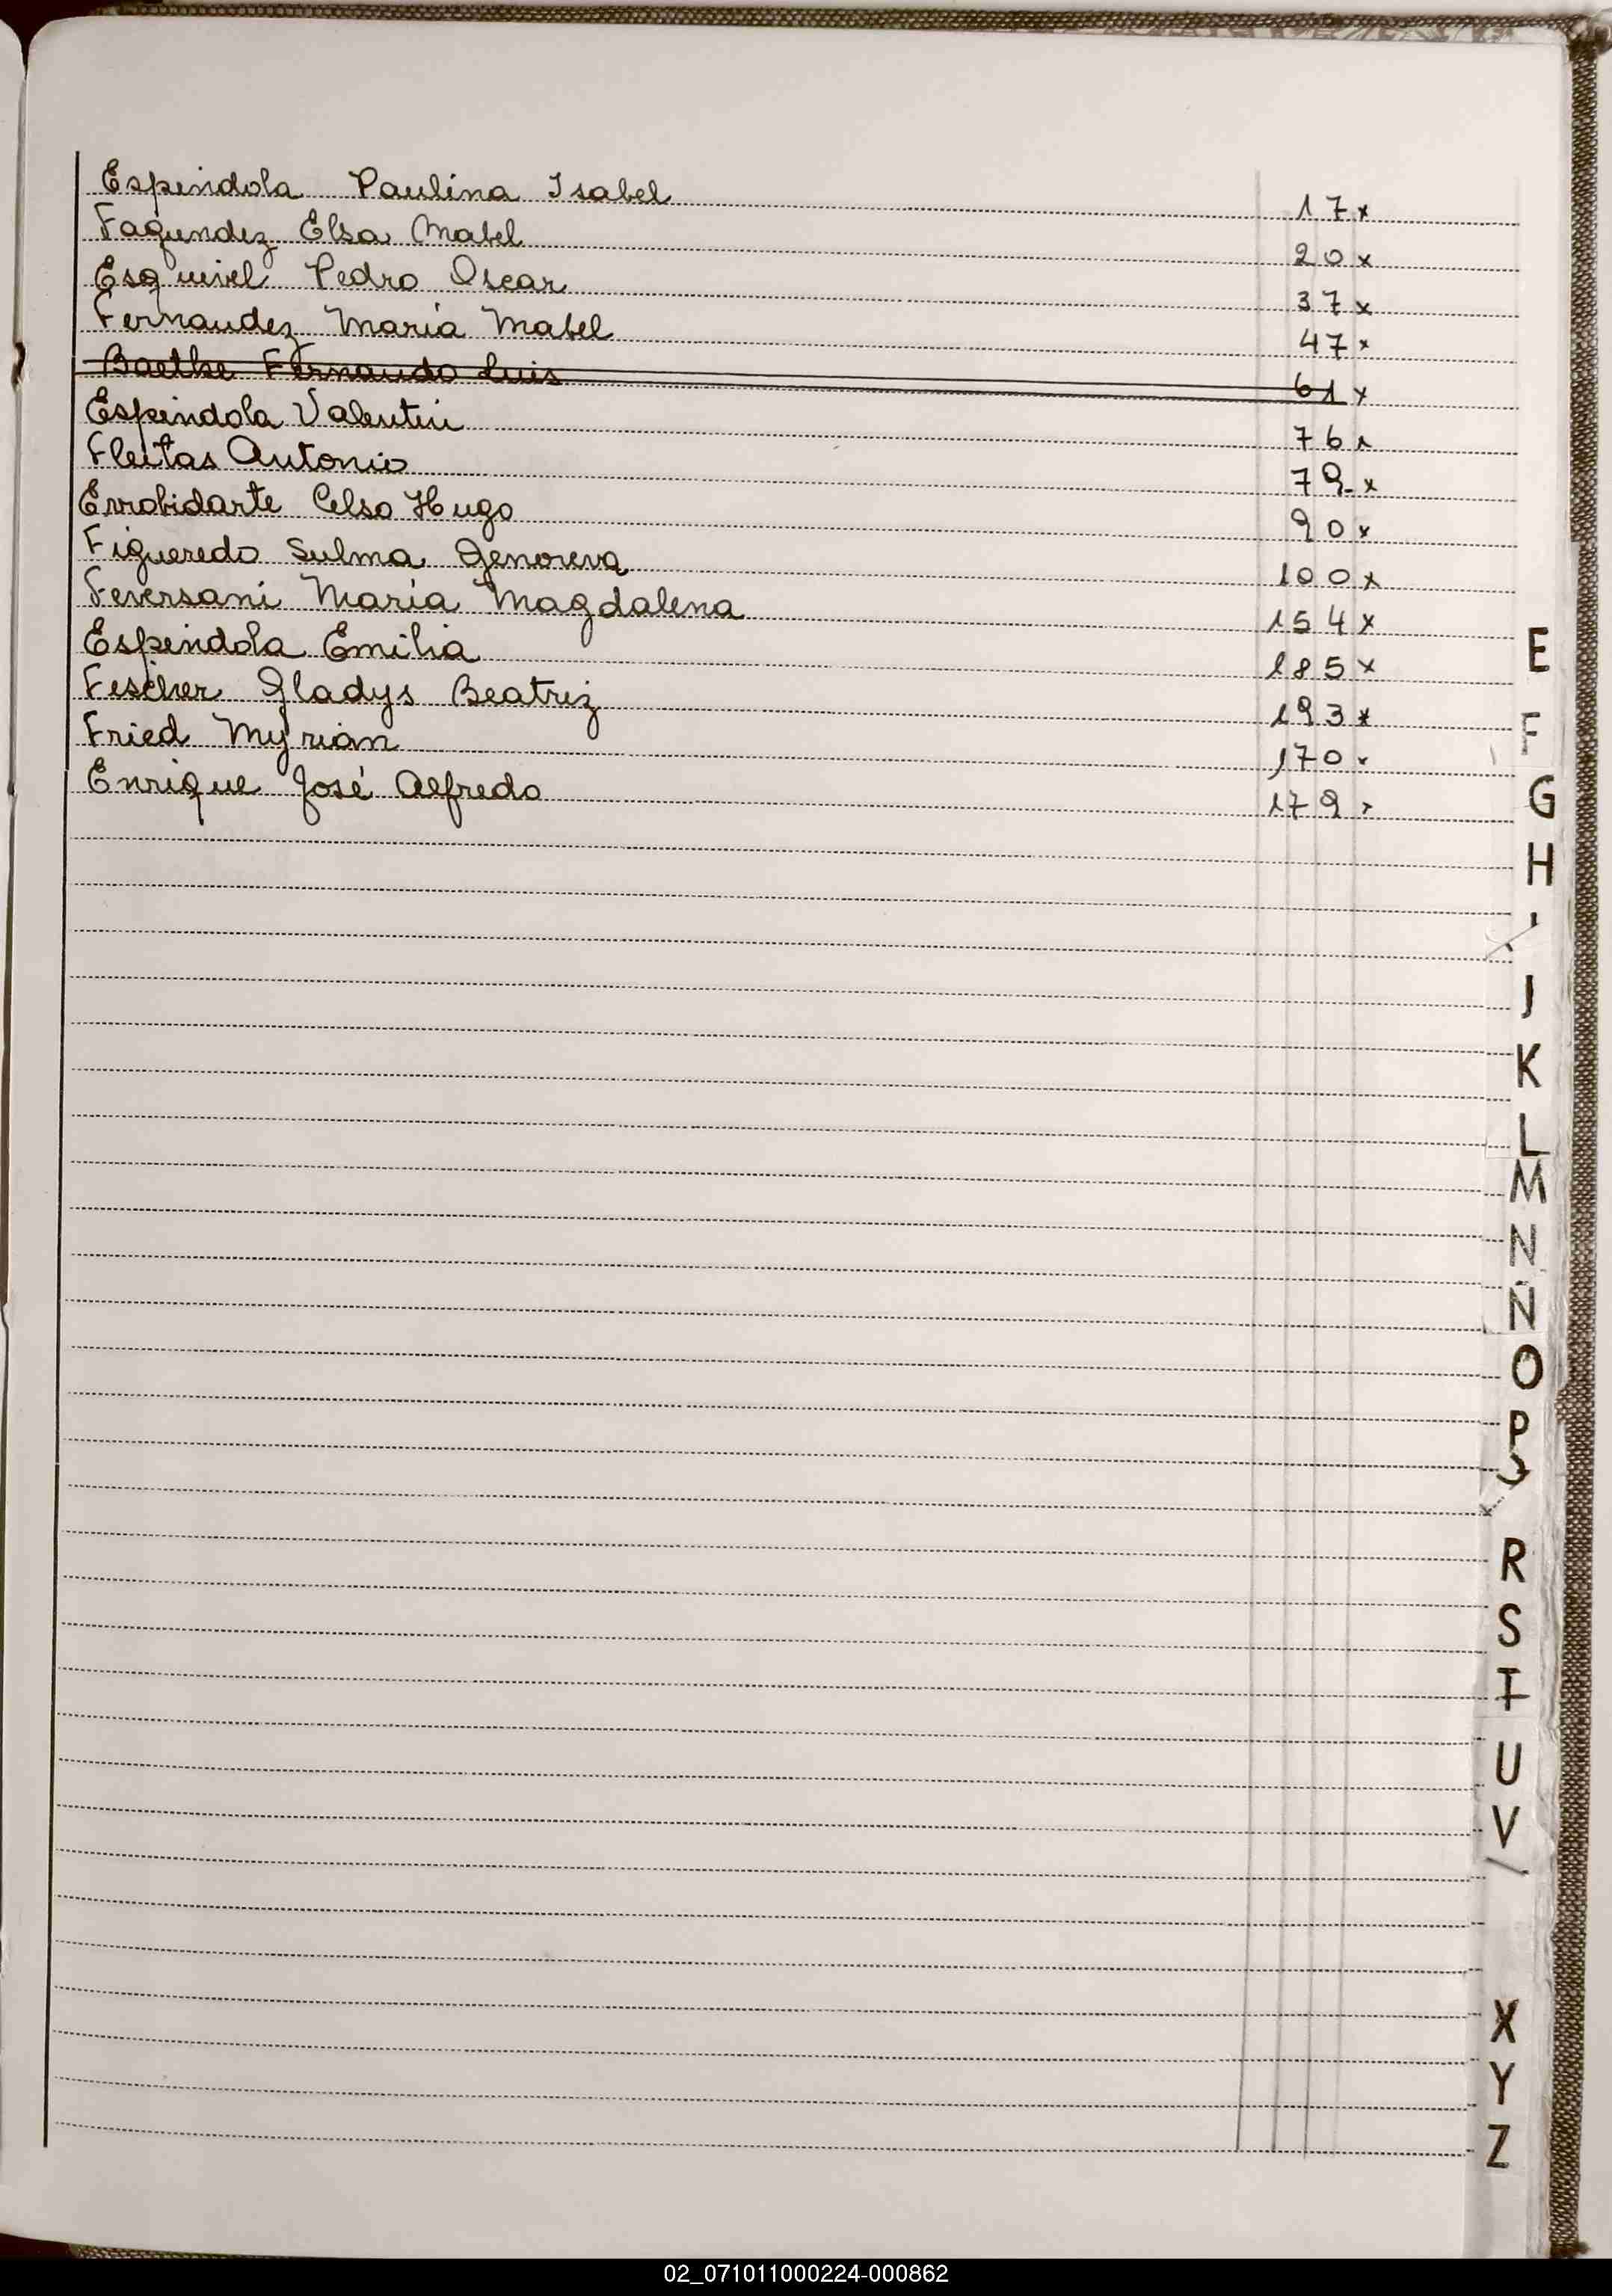 Espindola Paulina Isabel 17 x
Fagundez Elsa Mabel 20 x
Esquivel Pedro Oscar 37 x
Fernandez Maria Mabel 47 x
Baethke Fernando Luis 61 x
Espindola Valentin 76 x
Fleitas Antonio 79 x
Errobidarte Celso Hugo 90 x
Figueredo Sulma Genoveva 100 x
Feversani Maria Magdalena 154 x
Espindola Emilia 185 x
Fescher Gladys Beatriz 193 x
Fried Myrian 170 x
Enrique José Alfredo 179 x
E
F
G
H
J
K
L
M
N
Ñ
O
P
R
S
T
U
V
X
Y
Z
02_071011000224-000862